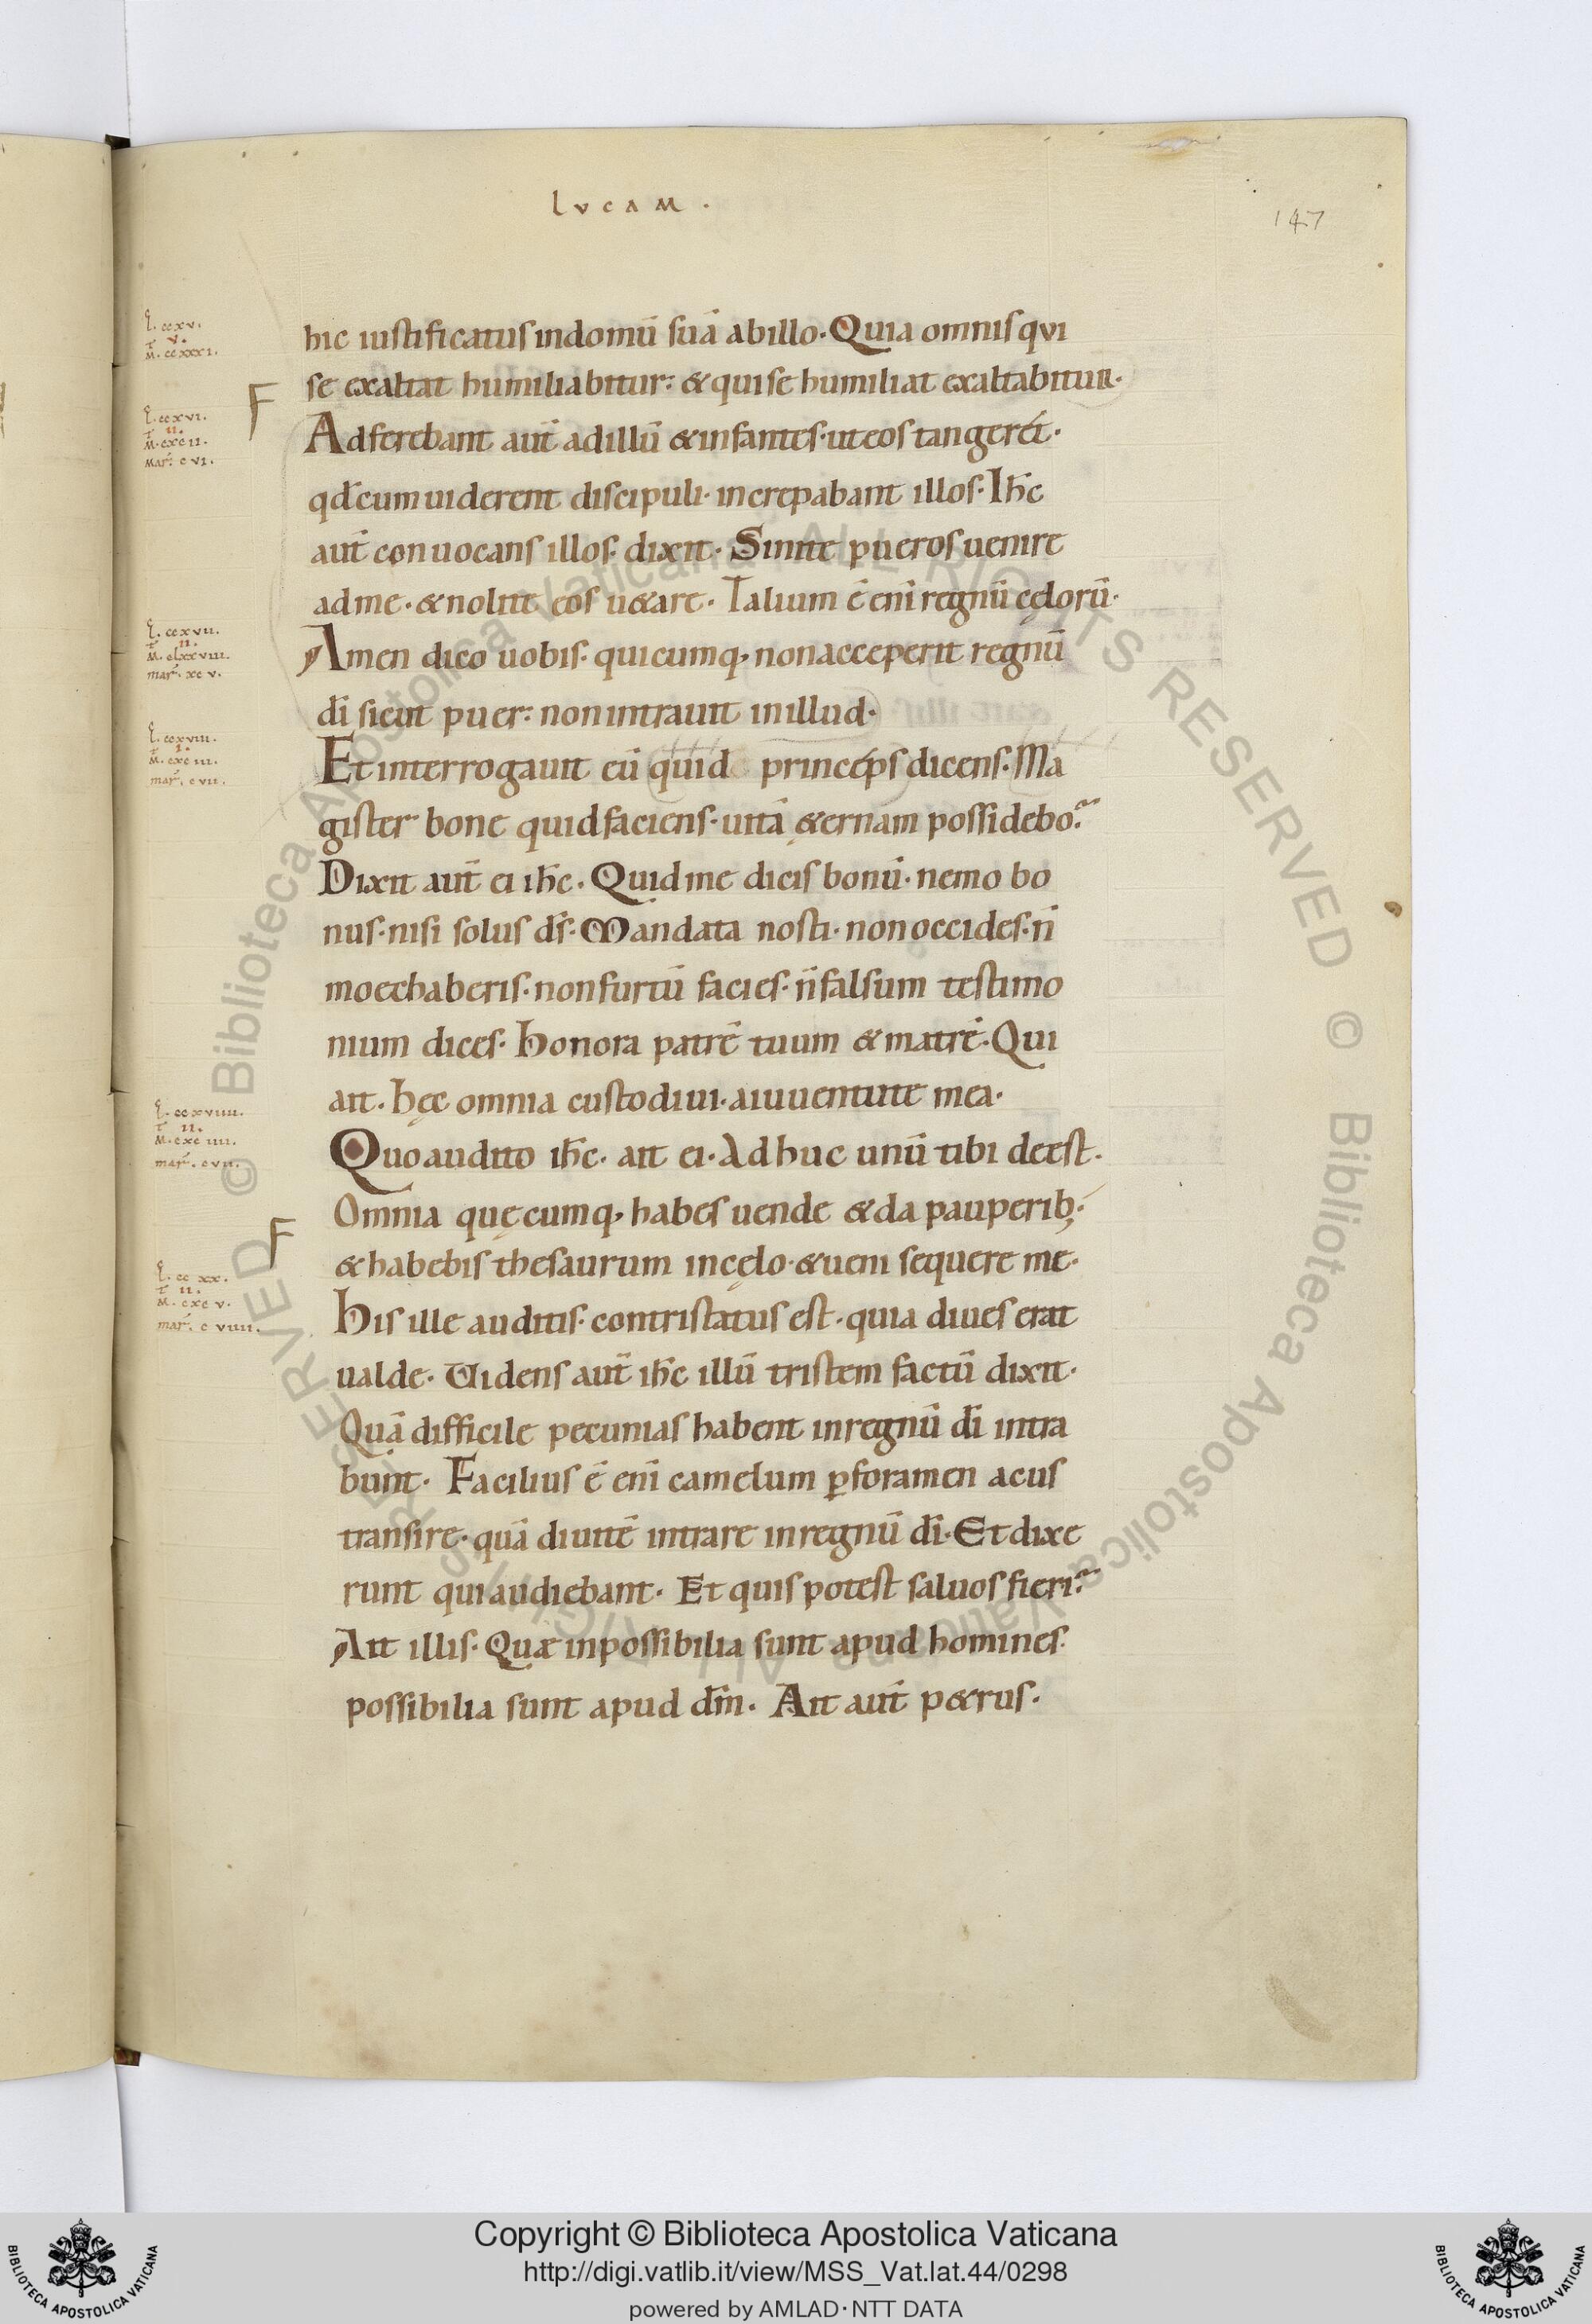 lvcam.
147
hic iustificatus indomū suā abillo. Quia omnis qvi
se exaltat humiliabitur: & qui se humiliat exaltabitur.
Adferebant aut̄ adillū & infantes. ut eos tangerēt.
qd̄ cum uiderent discipuli. increpabant illos. Ih̄c
aut̄ conuocans illos dixit. Sinite pueros uenire
adme. & nolite eos u&are. Talium ē enī regnū cęlorū.
Amen dico uobis. quicumq; non acceperit regnū
dī sicut puer: non intrauit inillud.
Et interrogauit eū quid princeps dicens. Ma
gister bone quid faciens. uitā &ernam possidebo?
Dixit aut̄ ei ih̄c. Quid me dicis bonū. nemo bo
nus. nisi solus ds̄. Mandata nosti. non occides. n̄
moechaberis. non furtū facies. n̄ falsum testimo
nium dices. Honora patrē tuum & matrē. Qui
ait. hęc omnia custodiui. aiuuentute mea.
Quo audito ih̄c. ait ei. Adhuc unū tibi deest.
Omnia quęcumq; habes uende & da pauperib;
& habebis thesaurum incęlo. & ueni sequere me.
his ille auditis. contristatus est. quia diues erat
ualde. Uidens aut̄ ih̄c illū tristem factū dixit.
Quā difficile pecunias habent inregnū dī intra
bunt. Facilius ē enī camelum ꝑ foramen acus
transire. quā diuitē intrare inregnū dī. Et dixe
runt qui audiebant. Et quis potest saluos fieri?
Ait illis. Quæ inpossibilia sunt apud homines.
possibilia sunt apud dm̄. Ait aut̄ p&rus.
l. ccxv.
v.
M. ccxxxi.
F
l. ccxvi.
ii.
M. cxcii.
mar. cvi.
l. ccxvii.
ii.
M. clxxviii.
mar. xcv.
l. ccxviii.
i.
M. cxciii.
mar. cvii.
l. ccxviiii.
ii.
M. cxciiii.
mar. cvii.
F
l. ccxx.
ii.
M. cxcv.
mar. cviiii.
© Biblioteca Apostolica Vaticana ALL RIGHTS RESERVED
© Biblioteca Apostolica Vaticana ALL RIGHTS RESERVED
Copyright © Biblioteca Apostolica Vaticana
http://digi.vatlib.it/view/MSS_Vat.lat.44/0298
powered by AMLAD·NTT DATA
BIBLIOTECA APOSTOLICA VATICANA
BIBLIOTECA APOSTOLICA VATICANA